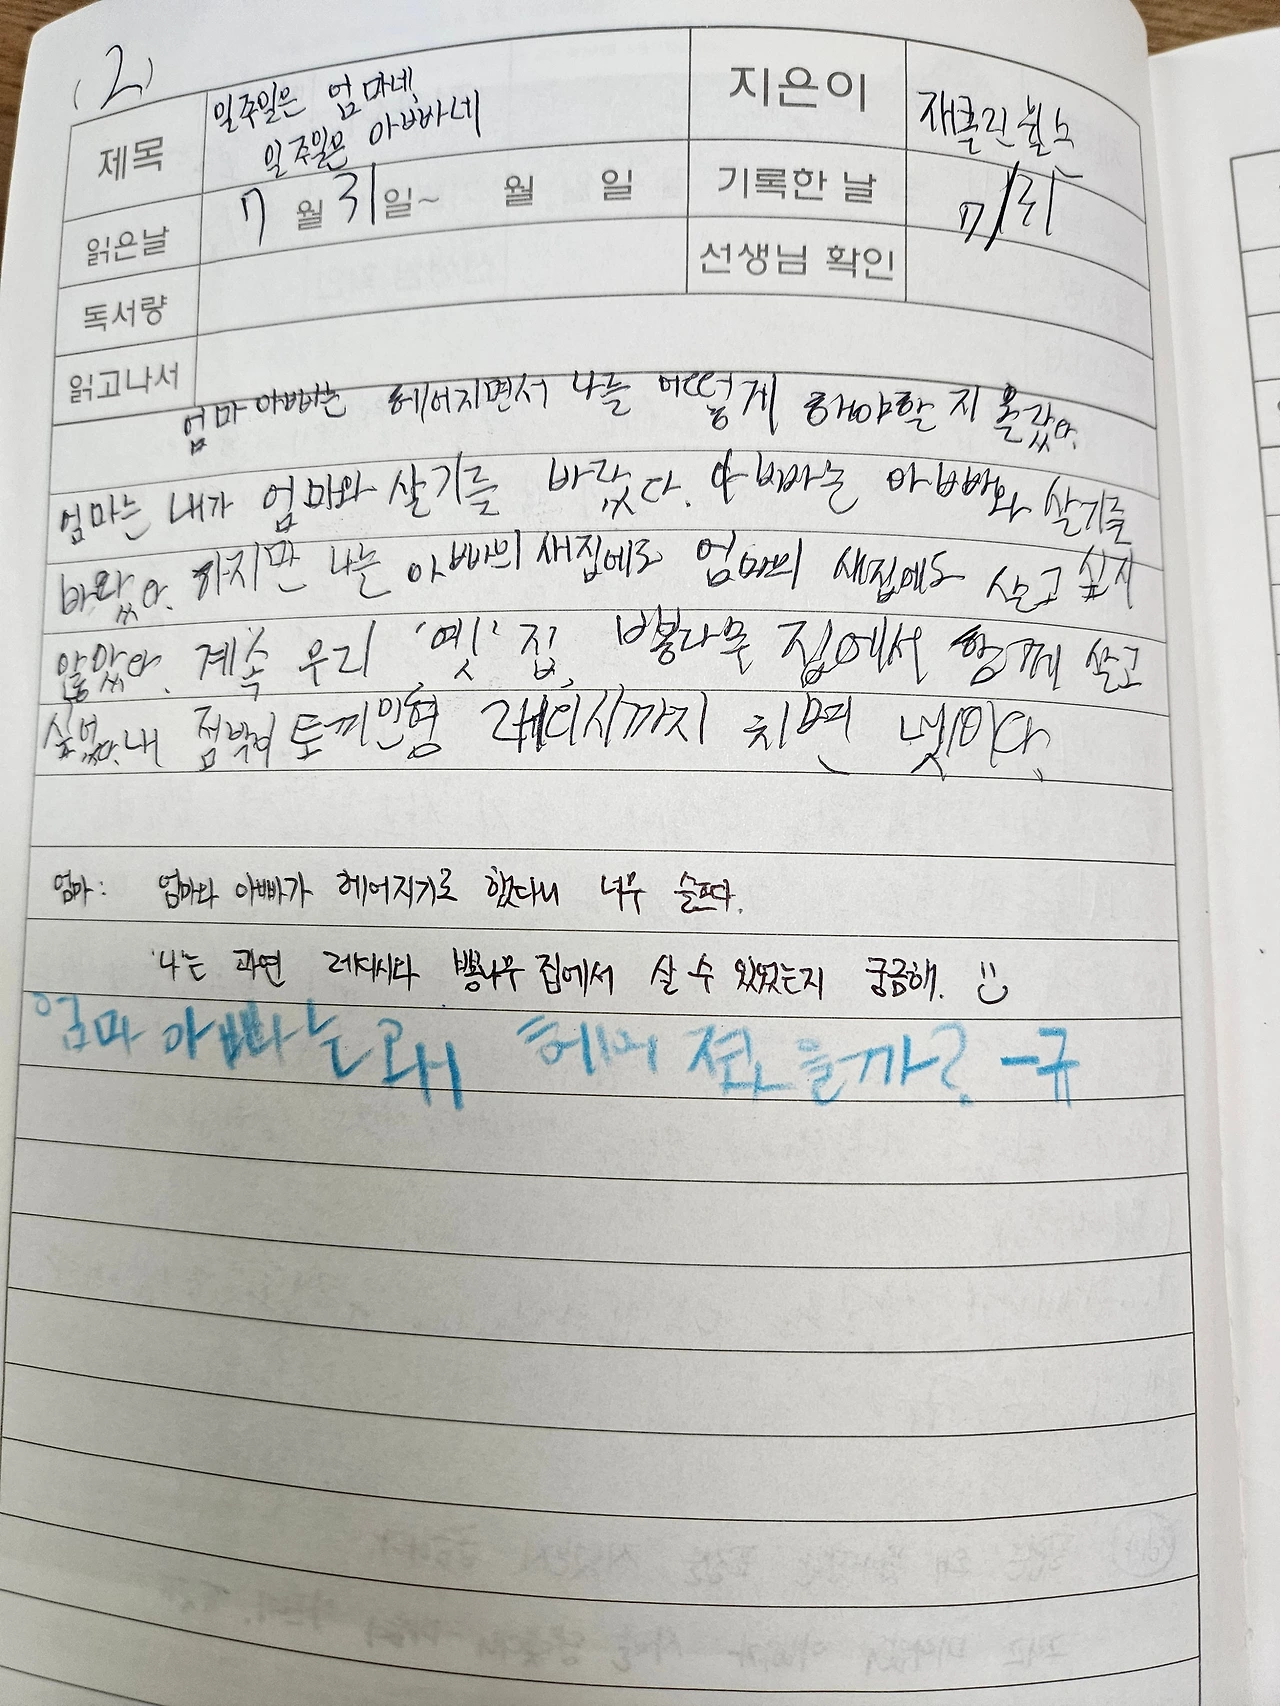 (2)
제목
일주일은 엄마네,
일주일은 아빠네
지은이
재클린 윌슨
읽은날
7월 31일~ 월 일
기록한 날
7/31
독서량
선생님 확인
읽고나서
엄마 아빠는 헤어지면서 나를 어떻게 해야할 지 몰랐다.
엄마는 내가 엄마와 살기를 바랐다. 아빠는 아빠와 살기를
바랐다. 하지만 나는 아빠의 새집에도 엄마의 새집에도 살고 싶지
않았다. 계속 우리 '옛' 집, 뽕나무 집에서 함께 살고
싶었다. 내 점박이 토끼인형 래디시까지 치면 넷이다.
엄마: 엄마와 아빠가 헤어지기로 했다니 너무 슬프다.
'나'는 과연 래디시와 뽕나무 집에서 살 수 있었는지 궁금해.
엄마 아빠는 왜 헤어 졌을까? -규